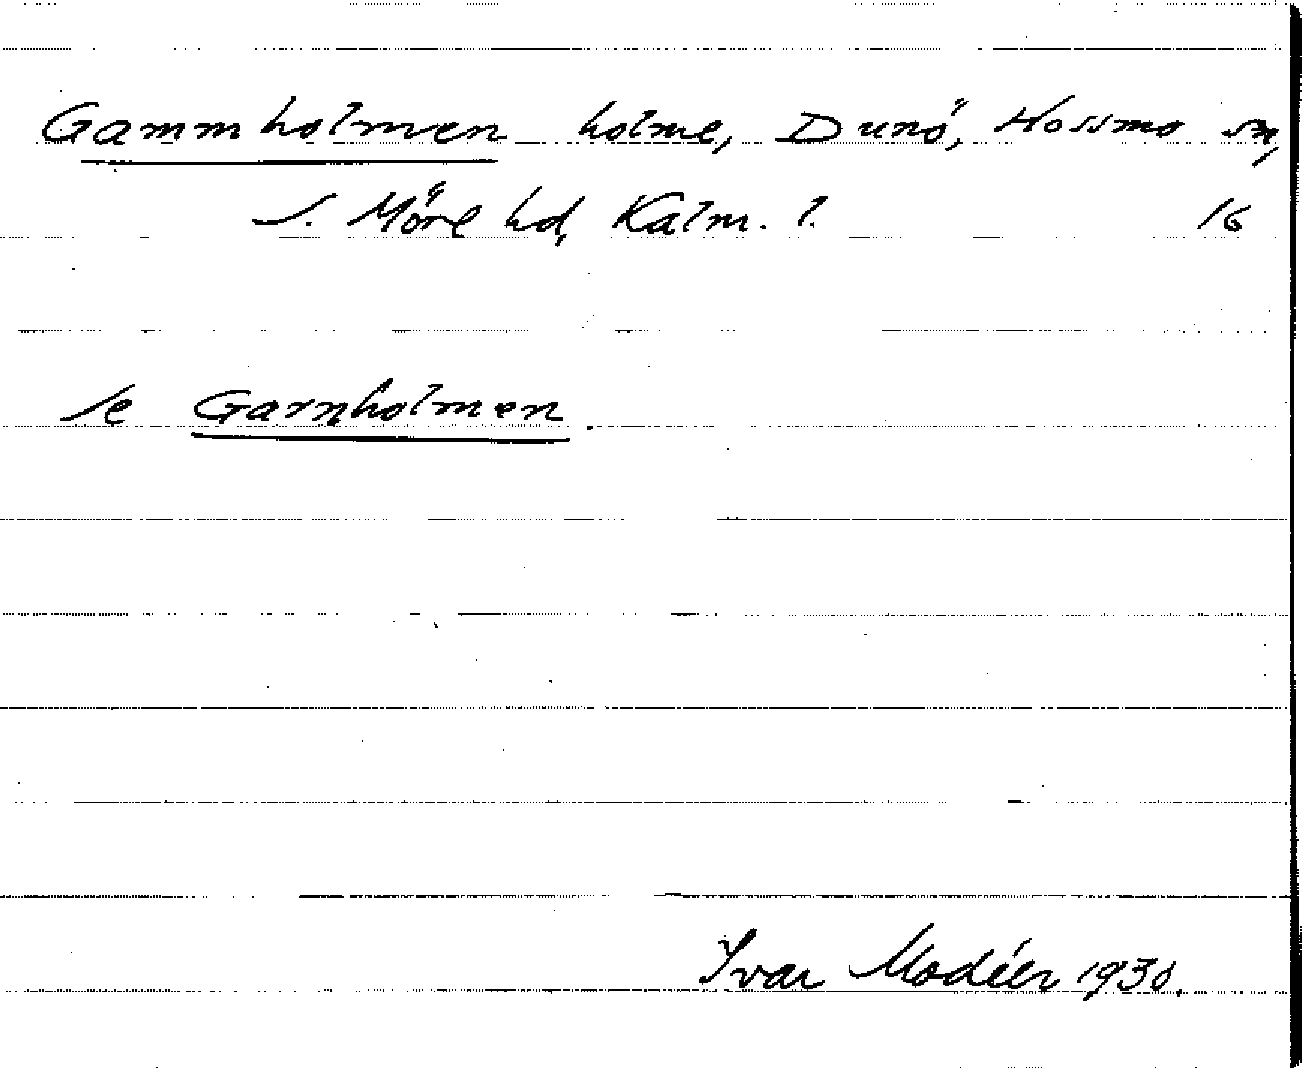 Gammholmen holme, Dunö, Hossmo sn,
S. Möre hd, Kalm. l. 16
Se Garnholmen.
Ivar Modéer 1930.